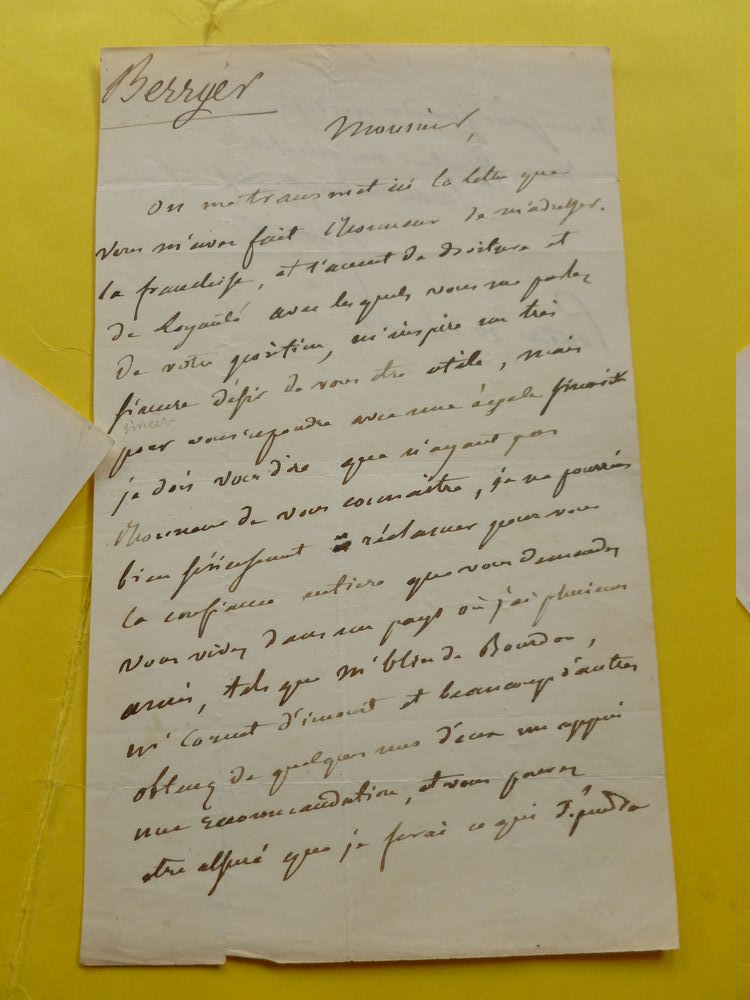 Berryer
Monsieur,
On me transmet ici la lettre que
vous m'avez fait l'honneur de m'adresser.
la franchise, et l'accent de droiture et
de loyauté avec lesquels vous me parlez
de votre position, m'inspire un très
sincere désir de vous etre utile, mais
sincere
pour vous repondre avec une égale sincérité
je dois vous dire que n'ayant pas
l'honneur de vous connaitre, je ne pourrais
bien sérieusement réclamer pour vous
la confiance entiere que vous demandez
vous vivez dans un pays où j'ai plusieurs
amis, tels que mr blin de Bourdon,
mr Cornet d'incourt et beaucoup d'autres
obtenez de quelques uns d'eux un appui
une recommandation, et vous pouvez
etre assuré que je ferai ce qui dépendra